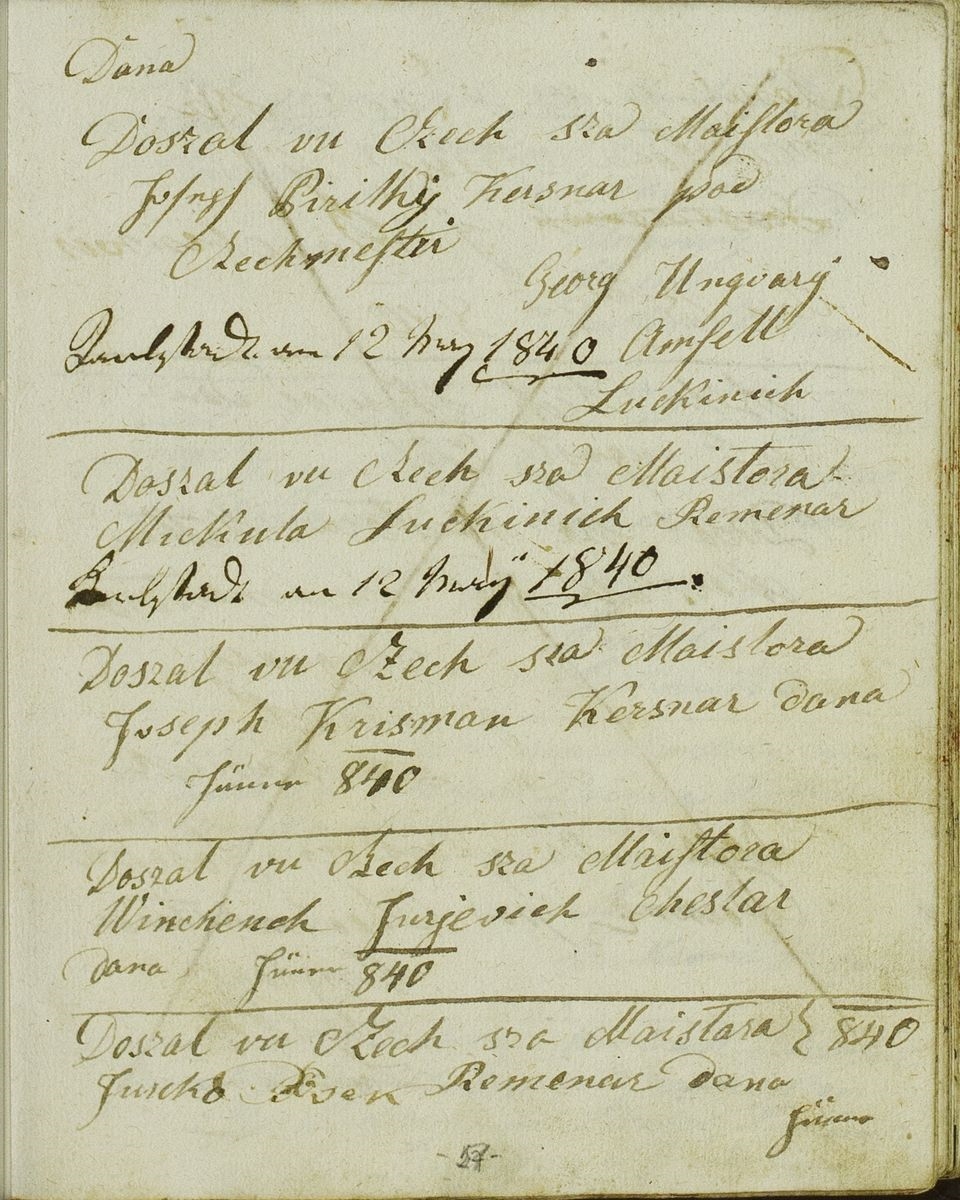 Dana
Doszal vu Czech sza Maistora
Joseph Pirithÿ Kersnar pod
Czechmestir
Georg Ungvarÿ
Karlstadt am 12 May 1840 Amsell
Luckinich
Doszal vu Czech sza Maistora
Mickula Luckinich Remenar
Karlstadt am 12 Maÿ 1840
Doszal vu Czech sza Maistora
Joseph Krisman Kersnar dana
Jänner 840
Doszal vu Czech sza Maistora
Winchench Jurjevich Cheslar
Dana Jänner 840
Doszal vu Czech sza Maistara } 840
Remenar Dana
Jänner